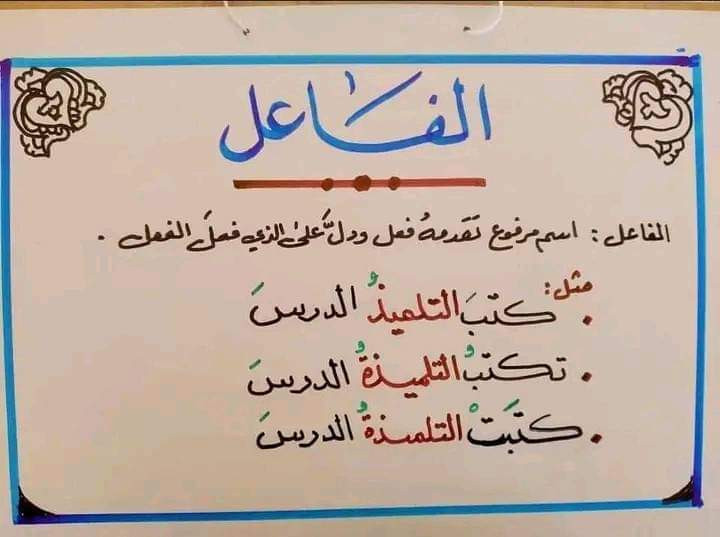 الفاعل
الفاعل: اسم مرفوع تقدمهُ فعل ودلَّ على الذي فعلَ الفعل.
مثل:
• كتبَ التلميذُ الدرسَ
• تكتبُ التلميذةُ الدرسَ
• كتَبتْ التلمذةُ الدرسَ